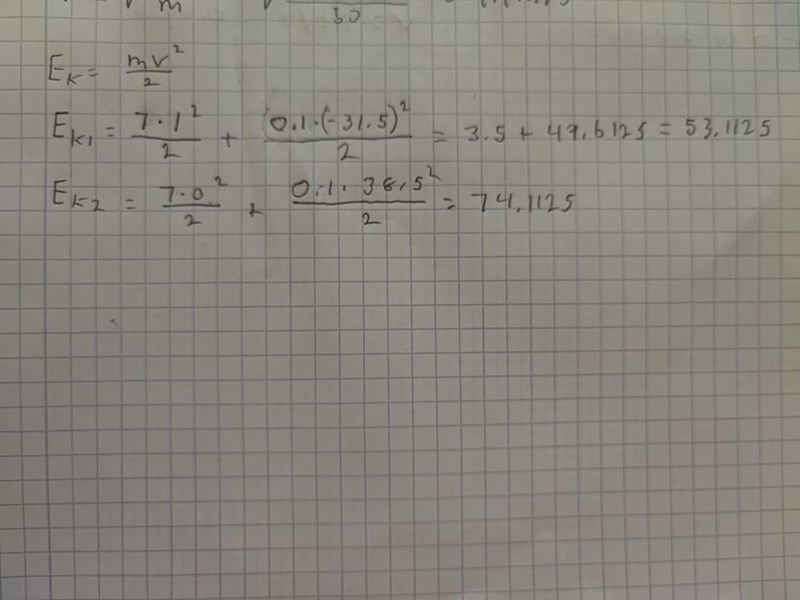 m 50
E_K = mv²/2
E_K1 = 7·1²/2 + 0.1·(-31.5)²/2 = 3.5 + 49.6125 = 53.1125
E_K2 = 7·0²/2 + 0.1·38.5²/2 = 74.1125